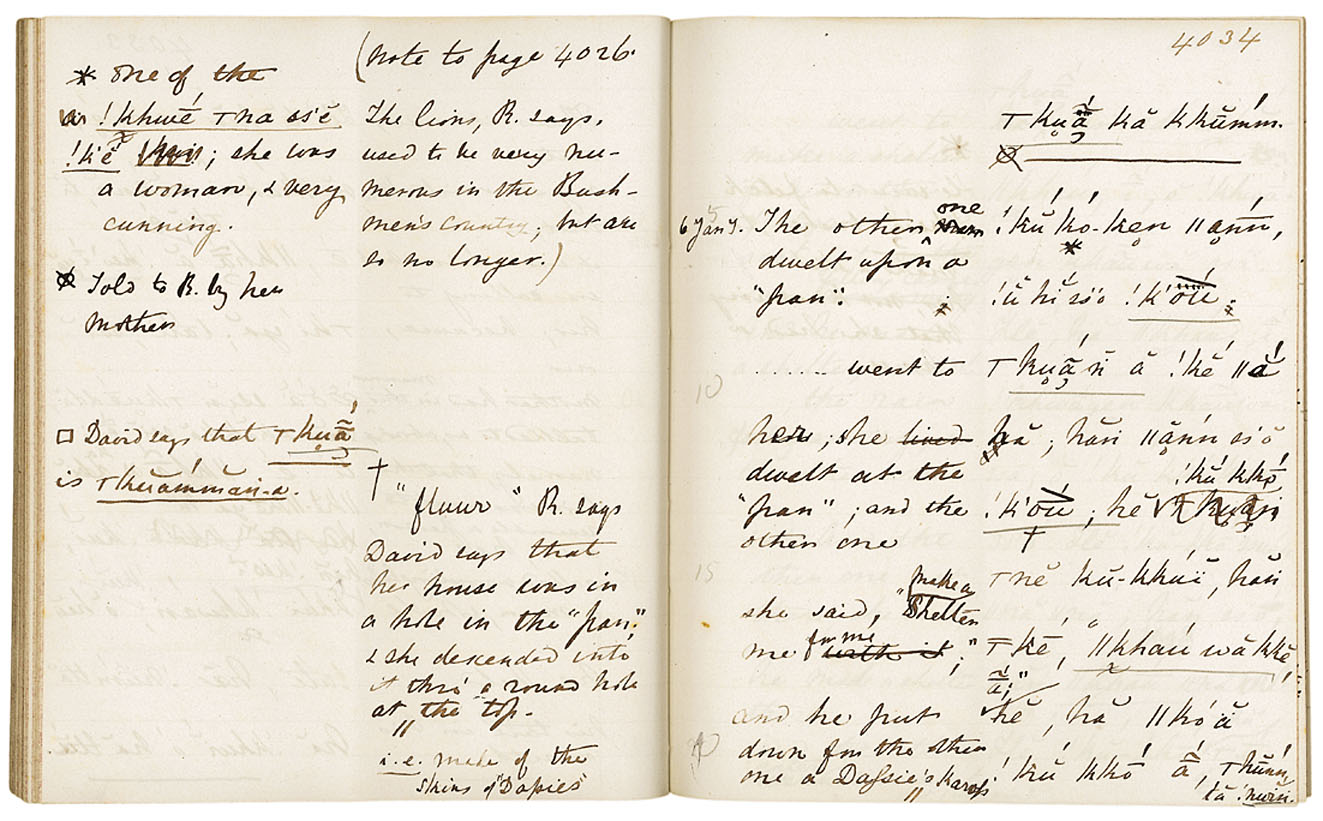 * one of the
!khwé ⊤na ss'ĕ
!k'ĕ ; she was
a woman, & very
cunning.
Told to R. by her
mother
□ David says that ⊤kuā́
is ⊤kŭámmăn-a.
(note to page 4026.
The lions, R. says,
used to be very nu-
merous in the Bush-
men's country; but are
so no longer.)
†
"fluur" R. says
David says that
her house was in
a hole in the "pan",
& she descended into
it thro' a round hole
at the top.
i.e. made of the
skins of "Dassies"
4034
⊤kuā́ kă kkŭmm.
6 Jany. The other one
dwelt upon a
"pan":
!kŭ kó-ken ǁánn,
*
!ŭ hĭ ss'o !k'óŭ
...... went to
⊤kuā́ ñ ā !ké ǁă
10
her; she lived
dwelt at the
"pan"; and the
other one
hă; hăn ǁánn ss'ŏ
!kŭ kkó
!k'óŭ; hĕ
†
15
she said, "make a
Shelter
me for me
with it;"
⊤nĕ kŭ-kkŭï, hăn
⊤kĕ, "ǁkhaú wă kkĕ
ā;"
and he put
down for the other
one a Dassie's Kaross
hĕ, hă ǁkóä
!kŭ kkó ā́, ⊤kúnn
tă !nwin.